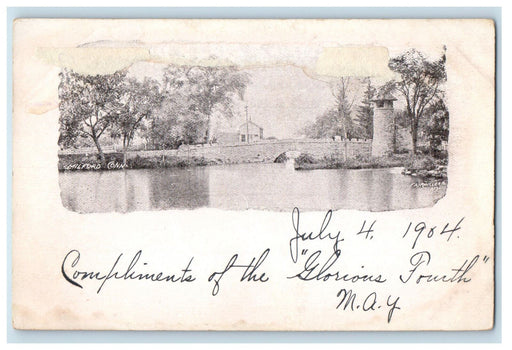 MILFORD CONN.
July 4, 1904.
Compliments of the "Glorious Fourth"
M.A.Y